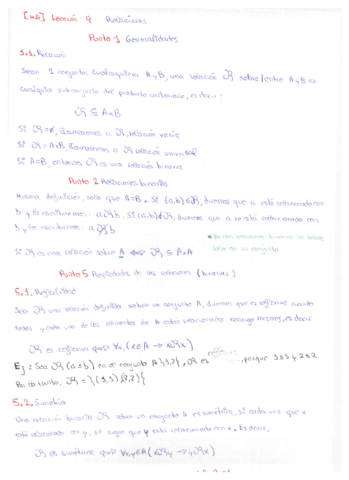 Lección 9 Relaciones
Punto 1 Generalidades
1.1. Relación
Sean 2 conjuntos cualesquiera A y B, una relación ℛ sobre/entre A y B es
cualquier subconjunto del producto cartesiano, es decir:
ℛ ⊆ A×B
Si ℛ=∅, llamaremos a ℛ, relación vacía
Si ℛ=A×B, llamaremos a ℛ relación universal
Si A=B, entonces ℛ es una relación binaria
Punto 2 Relaciones binarias
Misma definición, solo que A=B. Si (a,b)∈ℛ, diremos que a está relacionado con
b y lo escribiremos: aℛb. Si (a,b)∉ℛ, diremos que a no está relacionado con
b y lo escribimos: aℛ̸b
Si ℛ es una relación sobre A ⟺ ℛ ⊆ A×A
Punto 5 Propiedades de las relaciones (binarias)
5.1. Reflexividad
Sea ℛ una relación definida sobre un conjunto A, diremos que es reflexiva cuando
todos y cada uno de los elementos de A están relacionados consigo mismos, es decir
ℛ es reflexiva ⟺ ∀x(x∈A → xℛx)
Ej: Sea ℛ(a≤b) en el conjunto A{1,2}, ℛ es reflexiva, porque 1≤1 y 2≤2
Por lo tanto, ℛ={(1,1)(2,2)}
5.2. Simetría
Una relación binaria ℛ sobre un conjunto A es simétrica, si cada vez que x
está relacionado con y, se sigue que y está relacionado con x. Es decir,
ℛ es simétrica ⟺ ∀x,y∈A(xℛy → yℛx)